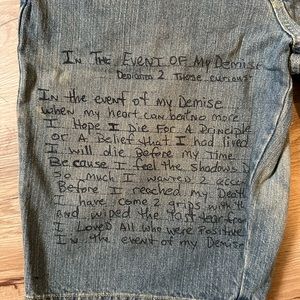 In The Event Of My Demise
Dedicated 2 Those Curious
In the event of my Demise
when my heart can beat no more
I Hope I Die For A Principle
or A Belief that I had lived
I will die before my Time
Because I feel the shadow's D
So much I wanted 2 acco
Before I reached my Dea
I have come 2 grips with th
and wiped the last tear from
I Loved All who were Positive
In the event of my Demise